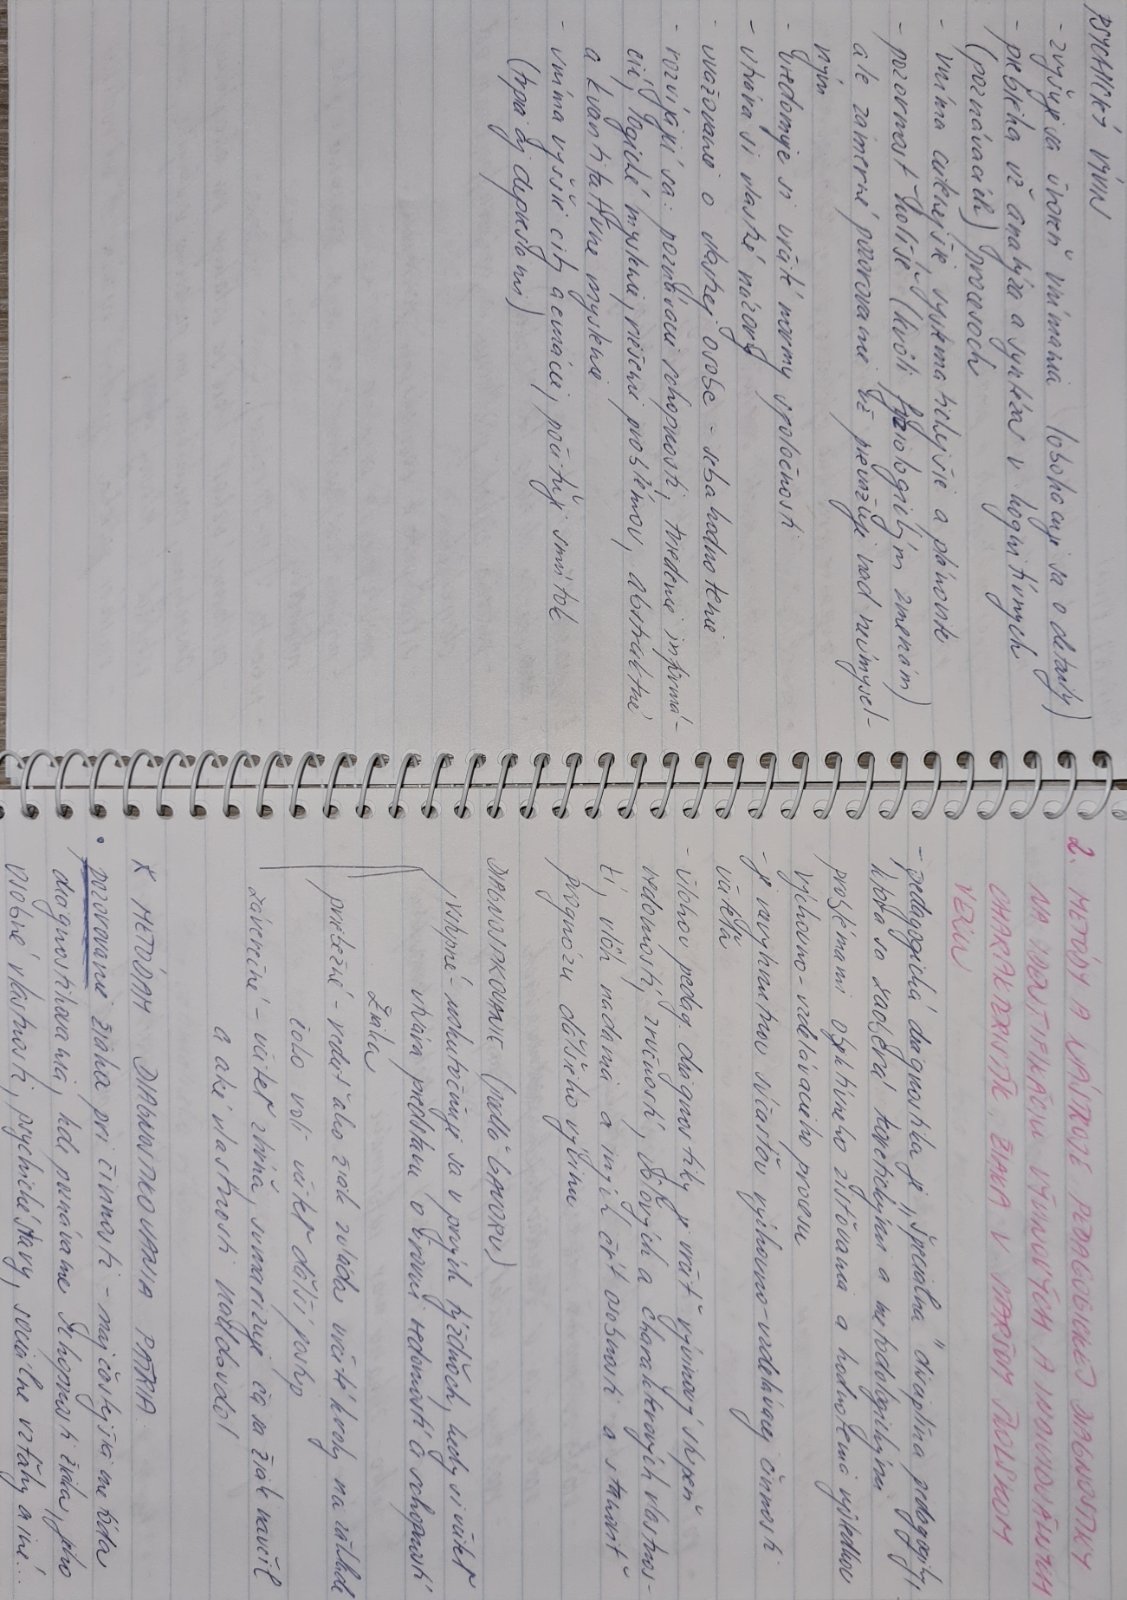 PSYCHICKÝ VÝVIN
- zvyšuje sa úroveň vnímania (obohacuje sa o detaily)
- prebieha už analýza a syntéza v kognitívnych
(poznávacích) procesoch
- vníma cielenejšie, systematickejšie a plánovite
- pozornosť kolíše (kvôli fyziologickým zmenám)
ale zámerné pozorovanie už prevažuje nad neúmysel-
ným
- uvedomuje si určité normy spoločnosti
- utvára si vlastné názory
- uvažovanie o vlastnej osobe - sebahodnotenie
- rozvíjajú sa: poznávacie schopnosti, triedenie informá-
cií, logické myslenie, riešenie problémov, abstraktné
a kvantitatívne myslenie
- vníma vyššie city a emócie, pociťuje smútok
(trpia aj depresiami)
2. METÓDY A NÁSTROJE PEDAGOGICKEJ DIAGNOSTIKY
NA IDENTIFIKÁCIU VÝVINOVÝCH A INDIVIDUÁLNYCH
CHARAKTERISTÍK ŽIAKA V STARŠOM ŠKOLSKOM
VEKU
- pedagogická diagnostika je „špeciálna" disciplína pedagogiky,
ktorá sa zaoberá teoretickými a metodologickými
problémami objektívneho zisťovania a hodnotenia výsledkov
výchovno-vzdelávacieho procesu
- je významnou súčasťou výchovno-vzdelávacej činnosti
učiteľa
- úlohou pedag. diagnostiky je určiť vývinový stupeň
vedomostí, zručností, vôľových a charakterových vlastnos-
tí, vlôh nadania a iných čŕt osobnosti a stanoviť
prognózu ďalšieho vývinu
DIAGNOSTIKOVANIE (podľa GAVORU)
vstupné - uskutočňuje sa v prvých týždňoch, kedy si učiteľ
utvára predstavu o úrovni vedomostí a schopností
žiaka
priebežné - vedieť ako žiak zvláda určité kroky na základe
čoho volí učiteľ ďalší postup
záverečné - učiteľ zhŕňa, sumarizuje čo sa žiak naučil
a aké vlastnosti nadobudol
K METÓDAM DIAGNOSTIKOVANIA PATRIA
• pozorovanie žiaka pri činnosti - najčastejšia metóda
diagnostikovania, kde poznávame schopnosti žiaka, jeho
osobné vlastnosti, psychické stavy, sociálne vzťahy a iné...